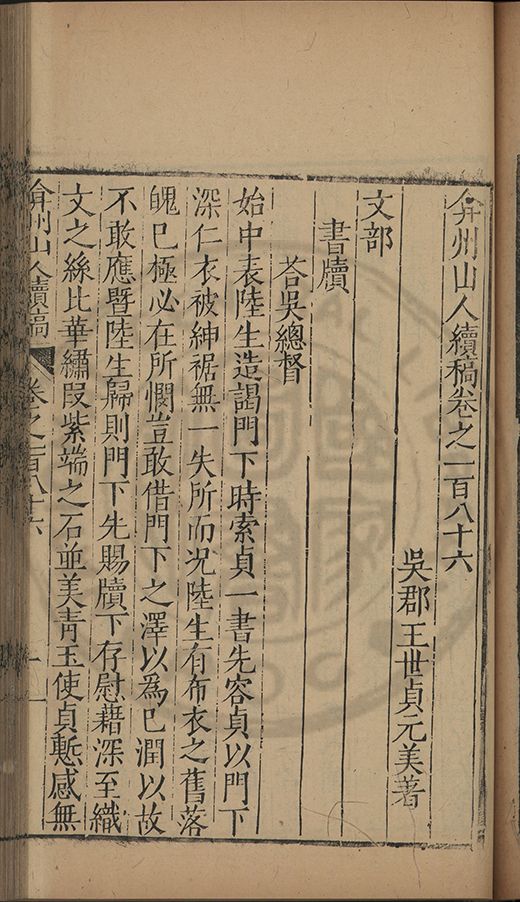 弇州山人續稿卷之一百八十六
吳郡王世貞元美著
文部
書牘
荅吳總督
始中表陸生造謁門下時索貞一書先容貞以門下
深仁衣被紳裾無一失所而况陸生有布衣之舊落
魄已極必在所憫豈敢借門下之澤以為已潤以故
不敢應暨陸生歸則門下先賜牘下存慰藉深至織
文之絲比華繡段紫端之石並美青玉使貞慙感無
弇州山人續稿
卷之一百八十六
一